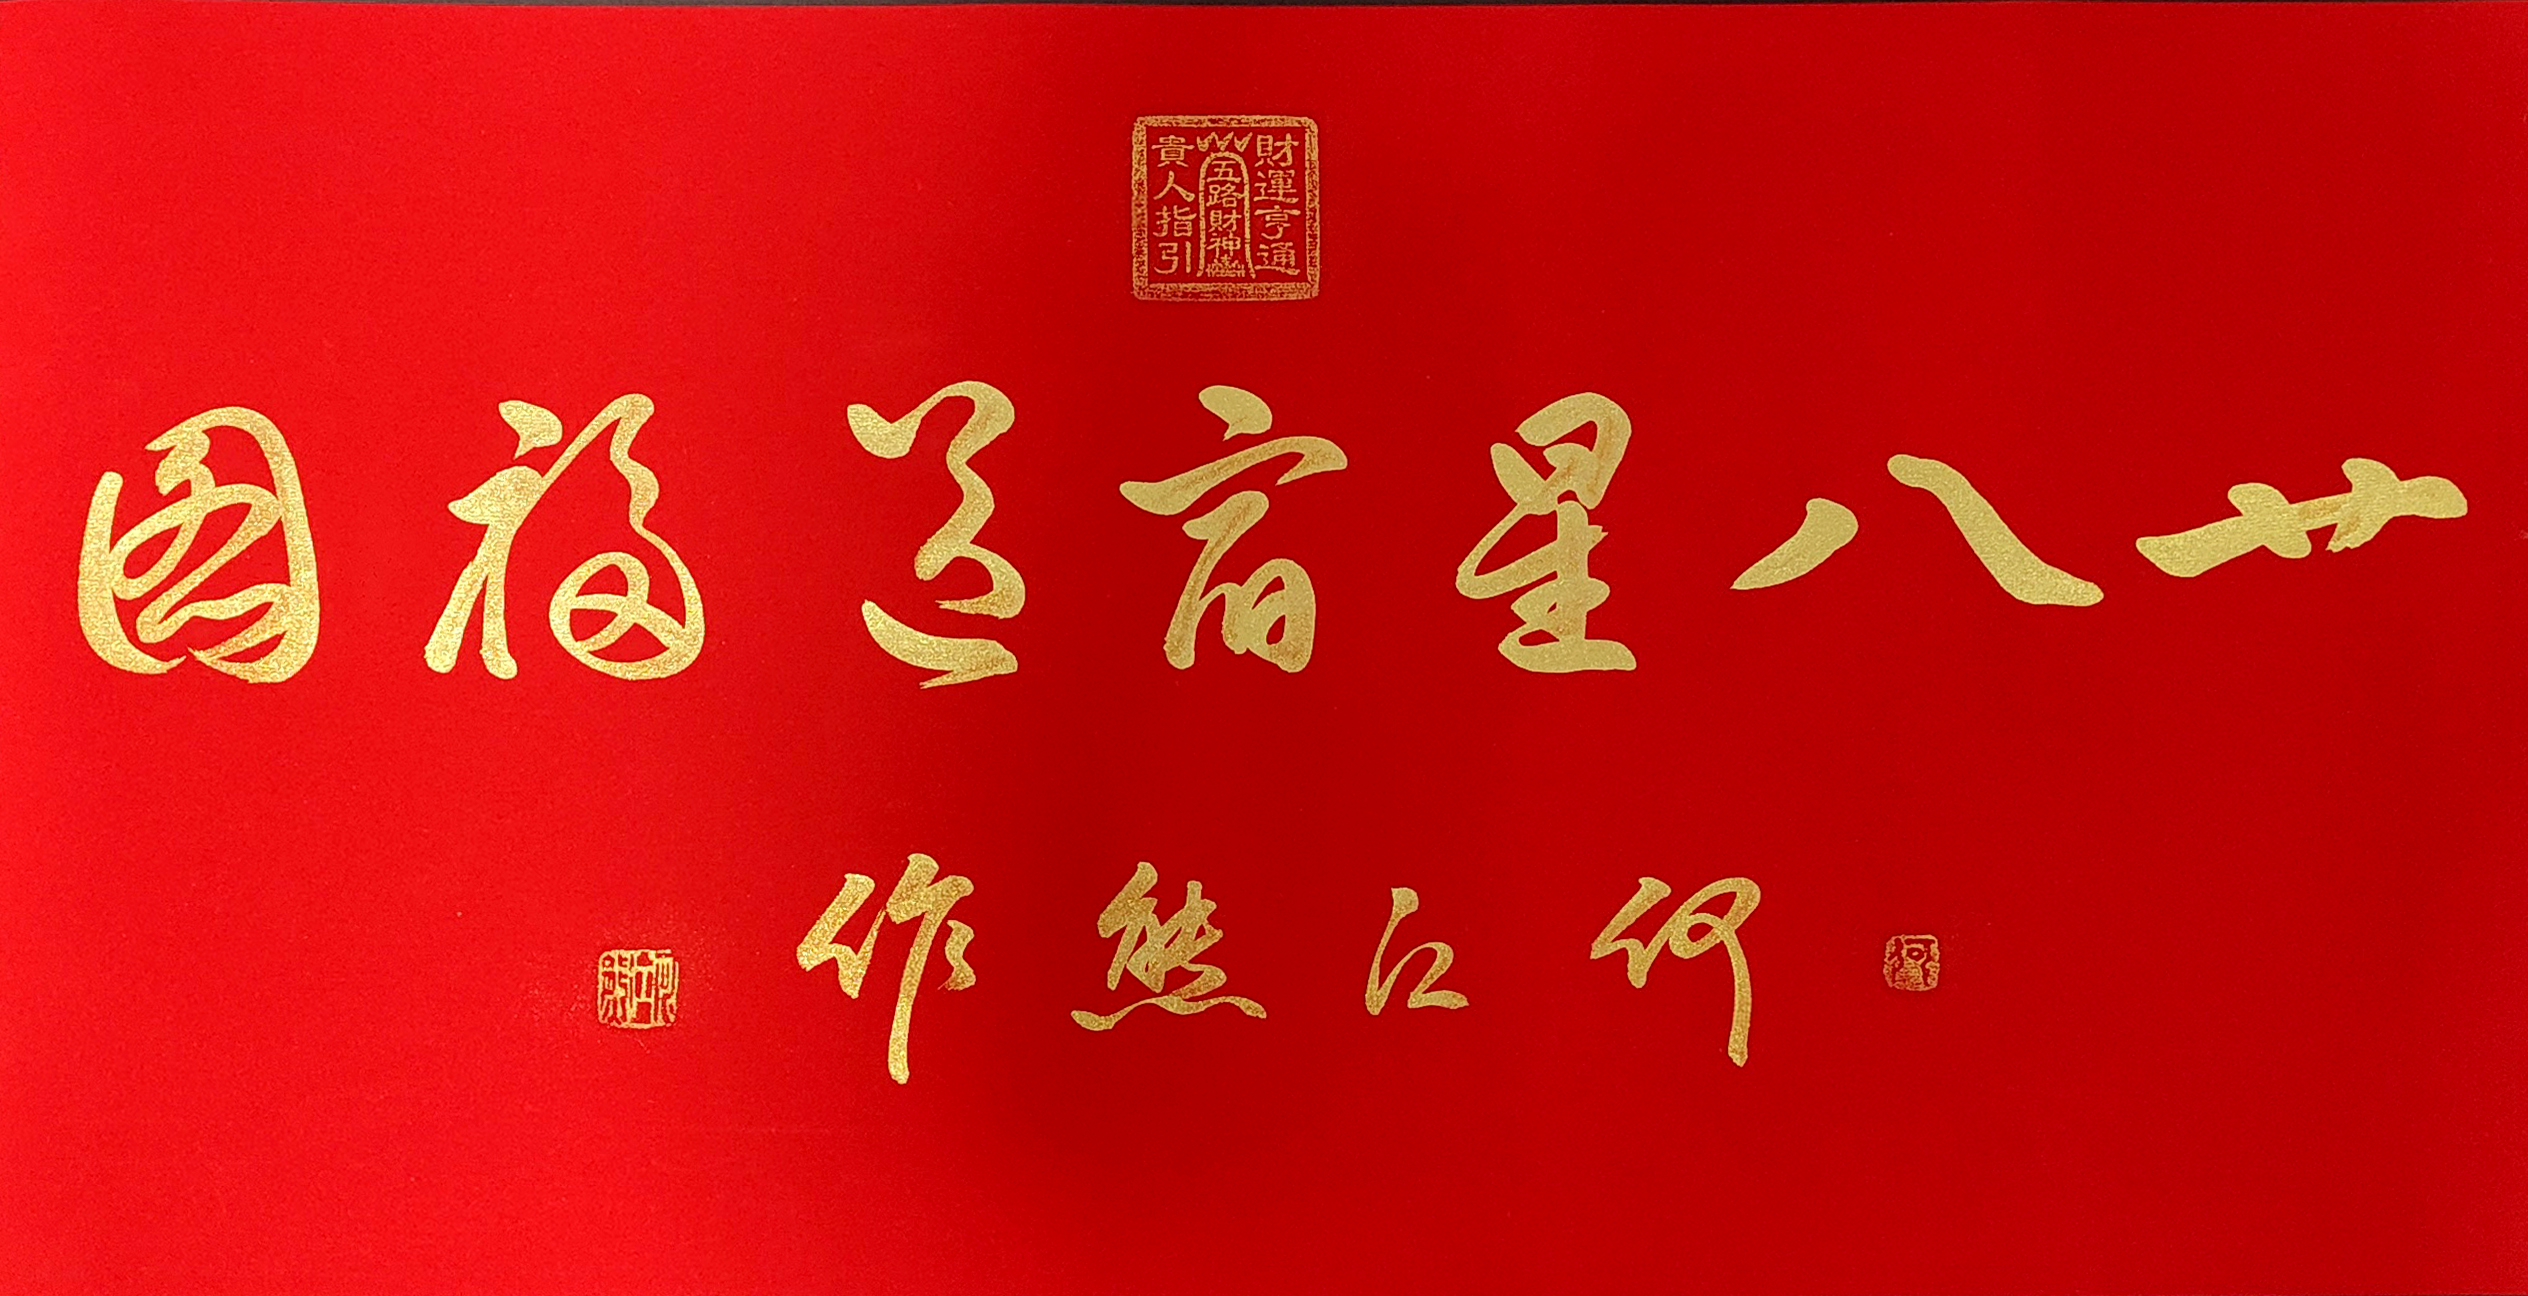 財運亨通
五路財神
貴人指引
廿八星宿送福圖
何江熊作